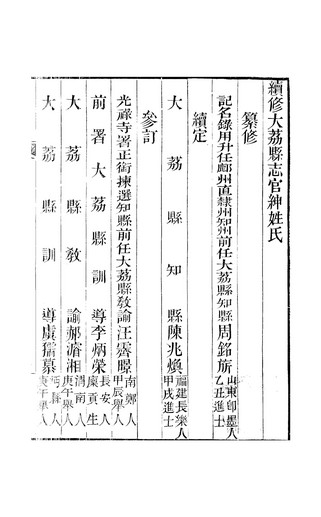 續修大荔縣志官紳姓氏
纂修
記名錄用升任鄜州直隸州知州前任大荔縣知縣周銘旂山東卽墨人乙丑進士
續定
大荔縣知縣陳兆煥福建長樂人甲戌進士
參訂
光祿寺署正銜揀選知縣前任大荔縣教諭汪霽暻南鄭人甲辰舉人
前署大荔縣訓導李炳榮長安人廩貢生
大荔縣教諭郝濬湘渭南人庚午舉人
大荔縣訓導虞獳慕沔縣人庚午舉人